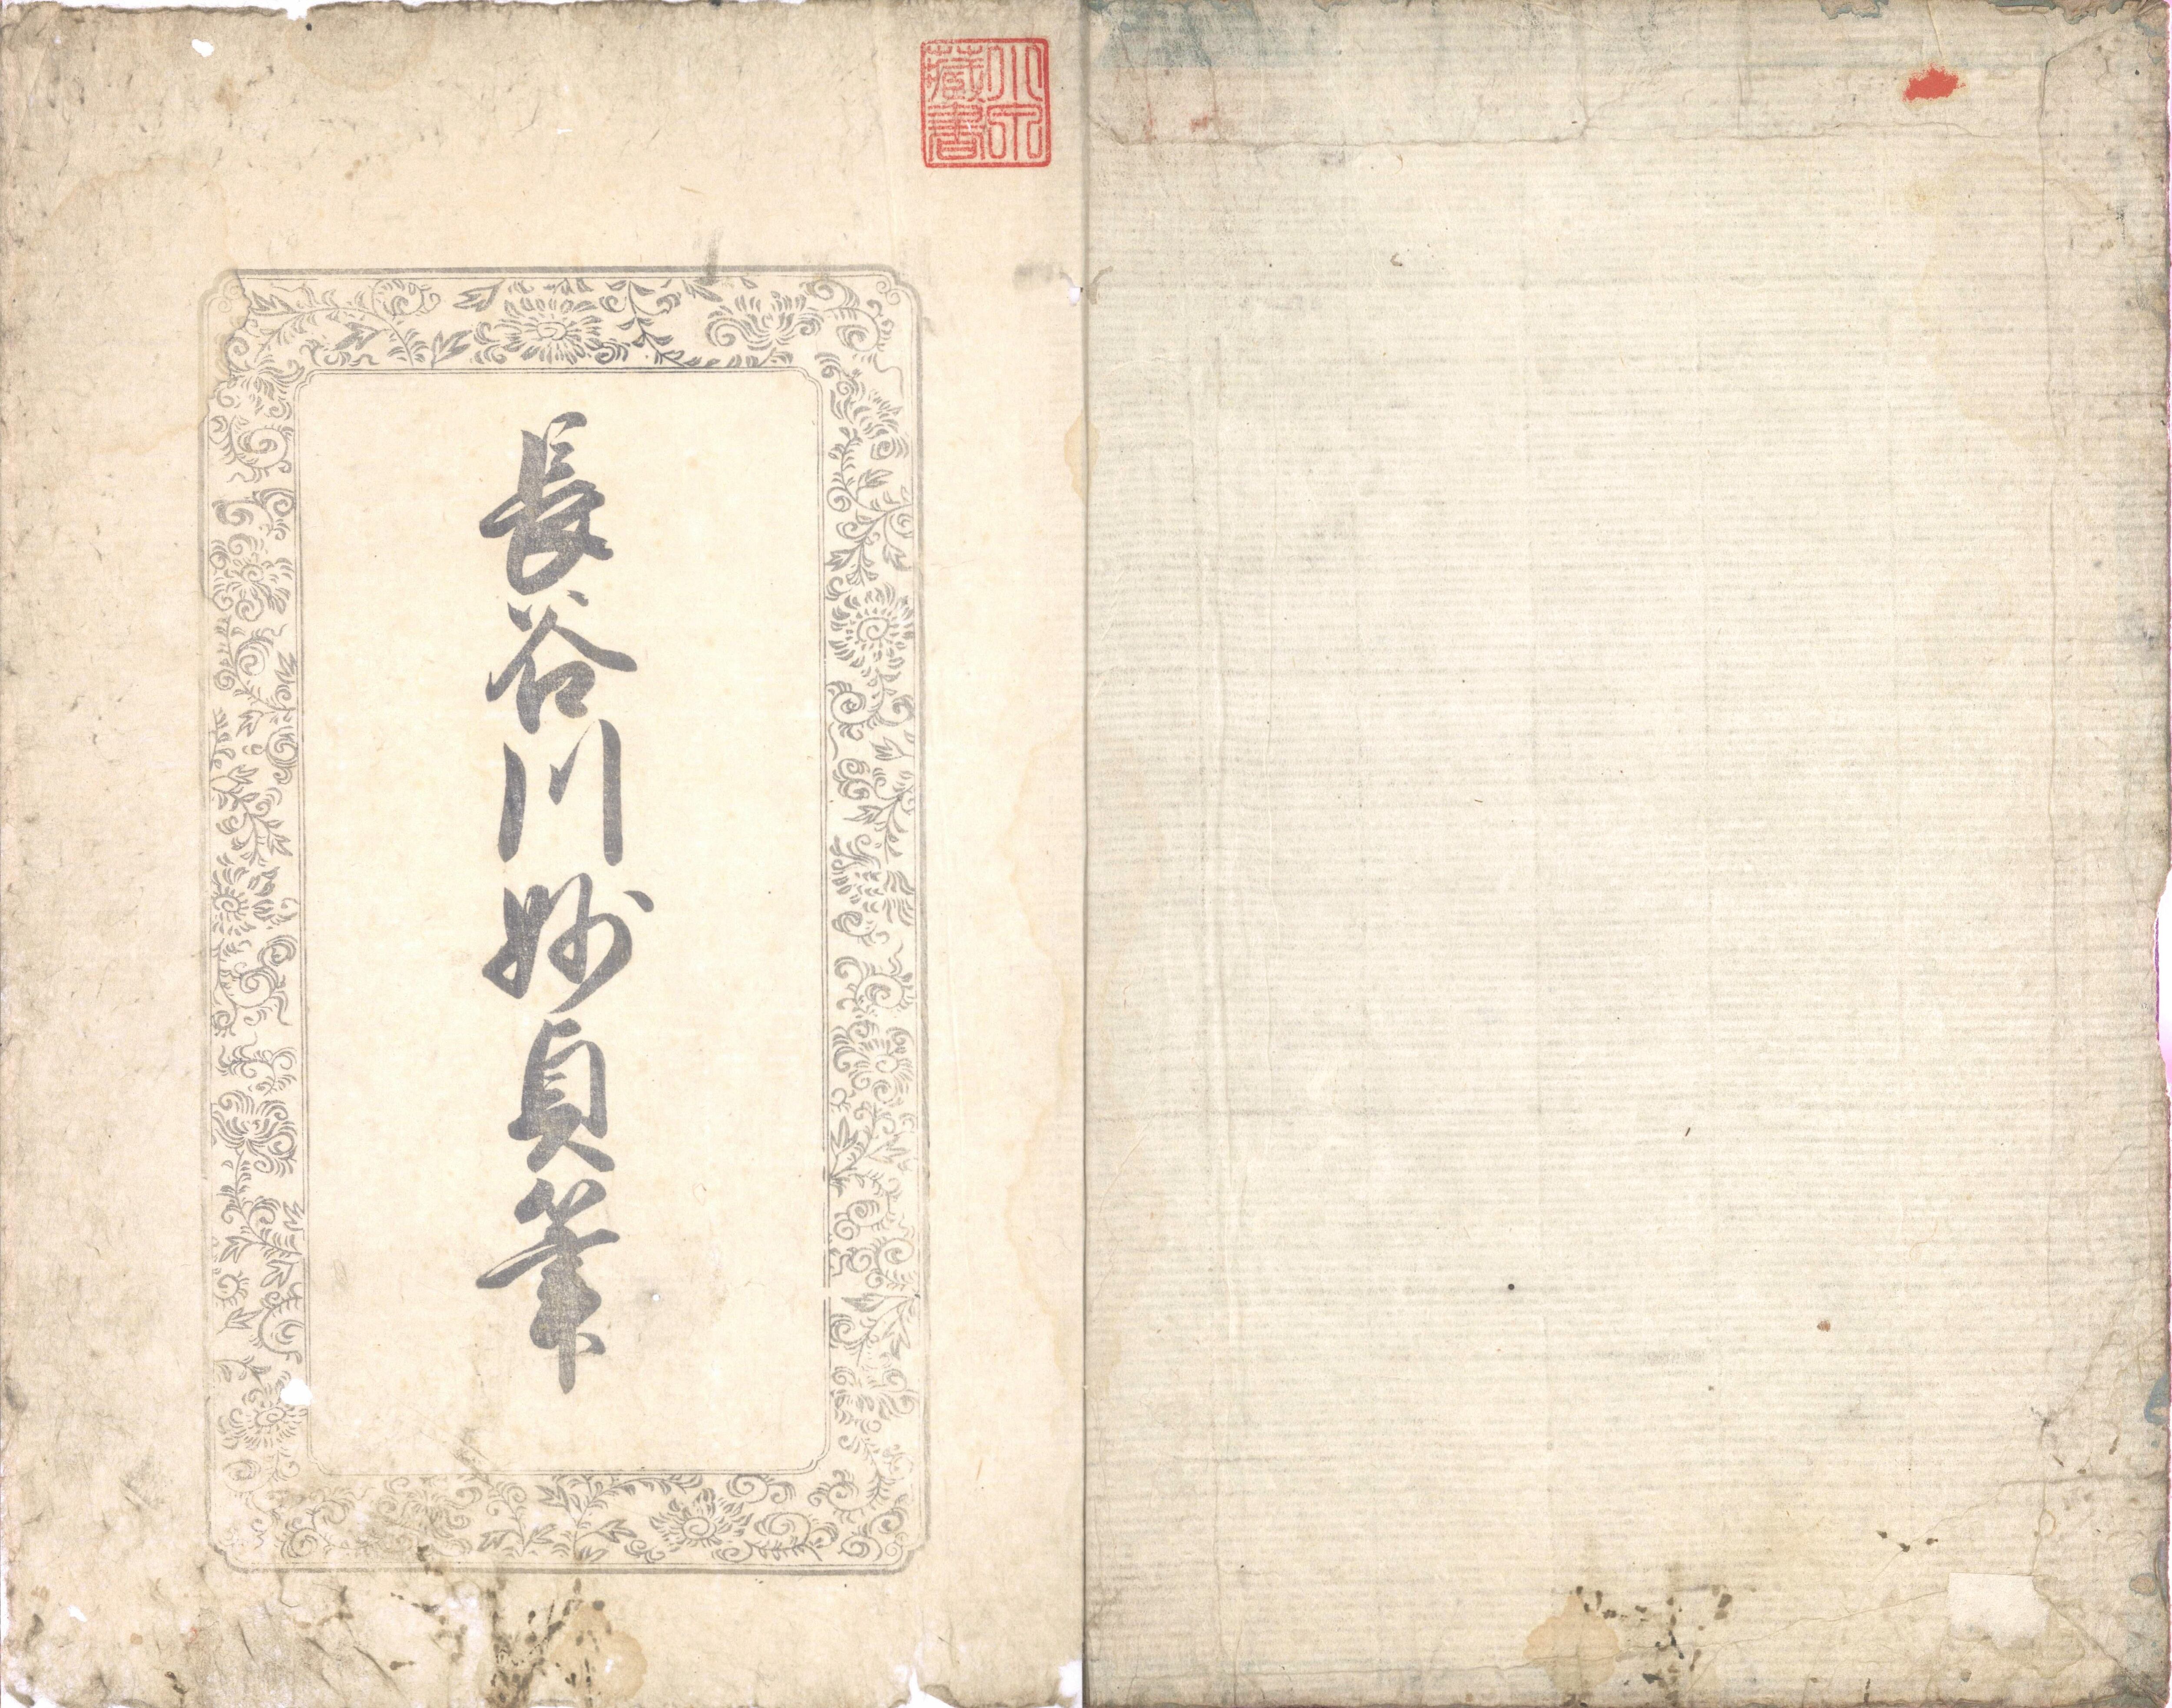 藏書
長谷川妙貞筆